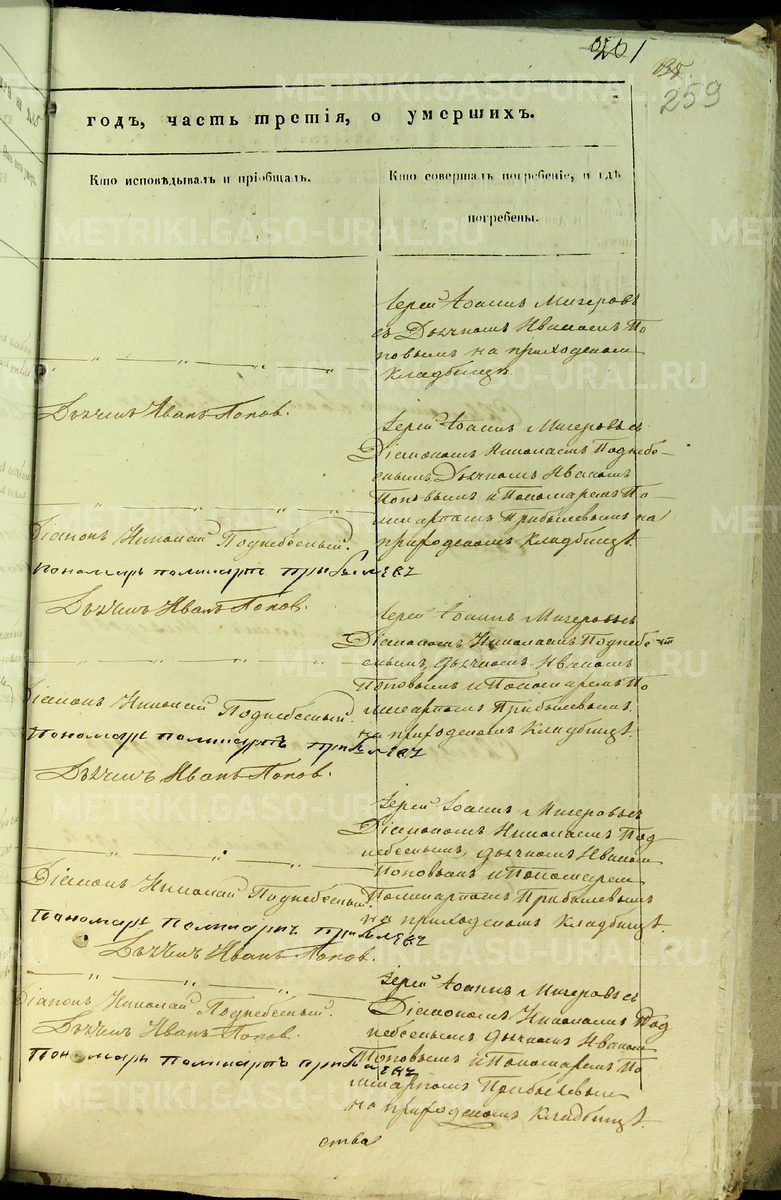 261
135.
259
годъ, часть третія, о умершихъ.
Кто исповѣдывалъ и пріобщалъ.
Кто совершалъ погребеніе, и гдѣ
погребены.
Іерей Іоаннъ Мигеровъ
съ Дьячкомъ Иваномъ По
повымъ на приходскомъ
кладбищѣ.
Дьячекъ Иванъ Поповъ.
Іерей Іоаннъ Мигеровъ съ
Діакономъ Николаемъ Поднебе-
снымъ, Дьячкомъ Иваномъ
Поповымъ и Пономаремъ По-
ликарпомъ Прибылевымъ на
приходскомъ кладбищѣ.
Діаконъ Николай Поднебесный.
Пономарь Поликарпъ Прибылевъ
Дьячекъ Иванъ Поповъ.
Іерей Іоаннъ Мигеровъ съ
Діакономъ Николаемъ Поднебе-
снымъ, дьячкомъ Иваномъ
Поповымъ и Пономаремъ По
ликарпомъ Прибылевымъ
на приходскомъ кладбищѣ.
Діаконъ Николай Поднебесный.
Пономарь Поликарпъ Прибылевъ
Дьячекъ Иванъ Поповъ.
Іерей Іоаннъ Мигеровъ съ
Діакономъ Николаемъ Под
небеснымъ, дьячкомъ Иваномъ
Поповымъ и Пономаремъ
Поликарпомъ Прибылевымъ
на приходскомъ кладбищѣ.
Діаконъ Николай Поднебесный.
Пономарь Поликарпъ Прибылевъ
Дьячекъ Иванъ Поповъ.
Іерей Іоаннъ Мигеровъ съ
Діакономъ Николаемъ Под
небеснымъ, дьячкомъ Иваномъ
Поповымъ и Пономаремъ По
ликарпомъ Прибылевымъ
на приходскомъ кладбищѣ.
Діаконъ Николай Поднебесный.
Дьячекъ Иванъ Поповъ.
Пономарь Поликарпъ Прибылевъ
ства
METRIKI.GASO-URAL.RU